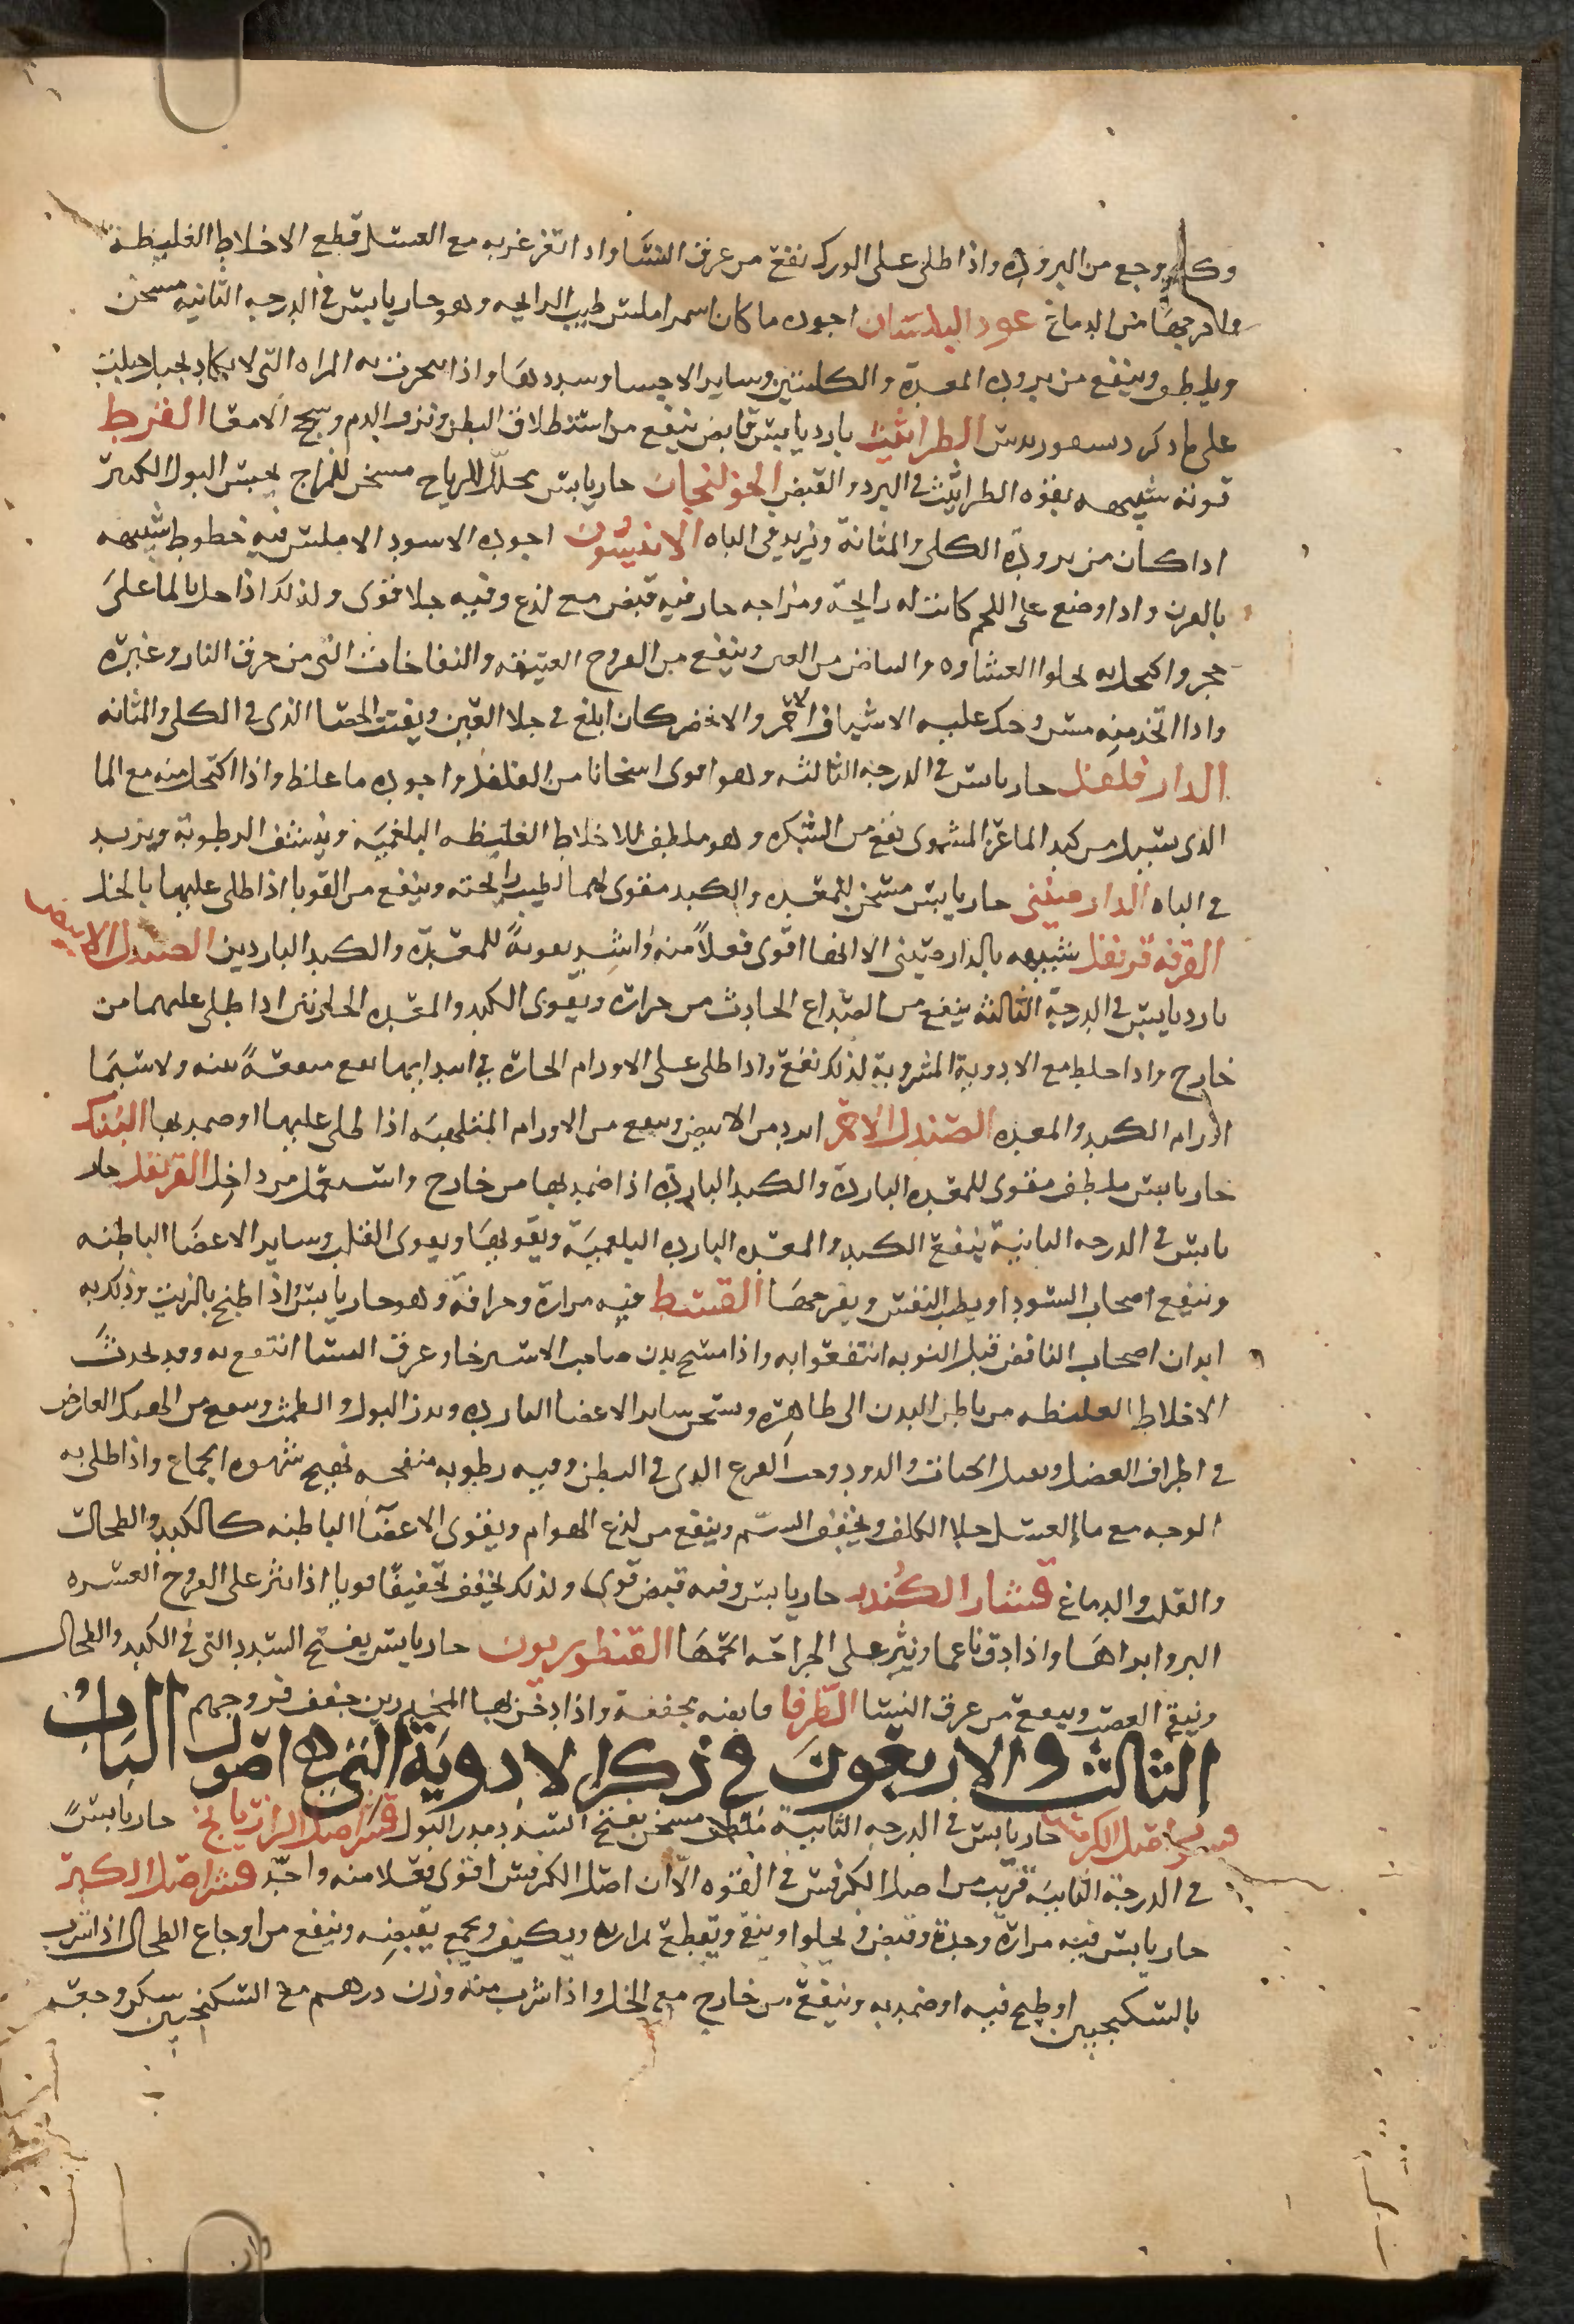 وكل وجع من البروده واذا طلى على الورك نفع من عرق النسا واذا تغرغر به مع العسل قطع الاخلاط الغليظه
واخرجها من الدماغ عود البلسان اجوده ما كان اسمر املس طيب الرايحه وهو حار يابس في الدرجه الثانيه مسخن
ويلطف وينفع من برودة المعدة والكليتين وساير الاحشا وسددها واذا تبخرت به المراه التي لا يكاد تحبل حبلت
على ما ذكر دسقوريدس الطراثيث بارد يابس قابض ينفع من استطلاق البطن ونزف الدم وسحج الامعا القرظ
قوته شبيهه بقوه الطراثيث في البرد والقبض الخولنجان حار يابس محلل للرياح مسخن للمزاج يحبس البول الكثير
اذا كان من برودة الكلى والمثانة ويزيد في الباه الابنوس اجوده الاسود الاملس فيه خطوط شبيهه
بالقرن واذا وضع على الجمر كانت له رايحة ومزاجه حار فيه قبض مع لذع وفيه جلا قوى ولذلك اذا حل بالما على
حجر واكتحل به يجلوا الغشاوه والبياض من العين وينفع من القروح العتيقه والنفاخات التي من حرق النار وغيره
واذا اتخذ منه مسن وحك عليه الاشياف الاحمر والاخضر كان ابلغ في جلا العين ويفتت الحصا الذي في الكلى والمثانه
الدارفلفل حار يابس في الدرجه الثالثه وهو اقوى اسخانا من الفلفل واجوده ما غلظ واذا اكتحل منه مع الما
الذي يسيل من كبد الماعز المشوى نفع من الشبكره وهو ملطف للاخلاط الغليظه البلغميه وينشف الرطوبة ويزيد
في الباه الدارصيني حار يابس مسخن للمعده والكبد مقوى لهما لطيب رايحته وينفع من القوبا اذا طلى عليها بالخل
القرفه قرنفل شبيهه بالدارصيني الا انها اقوى فعلاً منه واشد تقويةً للمعدة والكبد الباردين الصندل الابيض
بارد يابس في الدرجة الثالثه ينفع من الصداع الحادث من حراره ويقوى الكبد والمعده الحارتين اذا طلى عليهما من
خارج واذا خلط مع الادوية المشروبة لذلك نفع واذا طلى على الاورام الحاره في ابتدايها نفع منفعةً بينه ولا سيما
اورام الكبد والمعده الصندل الاحمر ابرد من الابيض وينفع من الاورام البلغميه اذا طلى عليها او ضمد بها البنك
حار يابس ملطف مقوى للمعده البارده والكبد الباردة اذا ضمد بها من خارج واستعمل من داخل القرنفل حار
يابس في الدرجه الثانية ينفع الكبد والمعده البارده البلغمية ويقويها ويقوى القلب وساير الاعضا الباطنه
وينفع اصحاب السودا ويطيب النفس ويفرحها القسط فيه مرارة وحرافة وهو حار يابس اذا طبخ بالزيت ودلك به
ابدان اصحاب النافض قبل النوبه انتفعوا به واذا مسح بدن صاحب الاسترخا وعرق النسا انتفع به وقد يحدث
الاخلاط الغليظه من باطن البدن الى ظاهره ويسخن ساير الاعضا البارده ويدر البول والطمث وينفع من الهتك العارض
في اطراف العضل ويقتل الحيات والدود وحب القرع الذي في البطن وفيه رطوبه منفخه تهيج شهوه الجماع واذا طلى به
الوجه مع ما العسل جلا الكلف ويخفف السم وينفع من لذع الهوام ويقوى الاعضا الباطنه كالكبد والطحال
والقلب والدماغ قشار الكندر حار يابس وفيه قبض قوى ولذلك يجفف تجفيفًا قويا اذا نثر على القروح العسره
البرو ابراها واذا دق ناعما ونثر على الجراحه الحمها القنطوريون حار يابس يفتح السدد التي في الكبد والطحال
وينقى العصب وينفع من عرق النسا الطرفا قابضه مجففة واذا دخن بها المجدرين جفف قروحهم الباب
الثالث والاربعون في ذكر الادوية التي هي اصول
قشر اصل الكرفس حار يابس في الدرجه الثانية ملطف مسخن يفتح السدد مدر للبول قشر اصل الرازيانج حار يابس
في الدرجة الثانيه قريب من اصل الكرفس في القوه الا ان اصل الكرفس اقوى فعلا منه واحد قشر اصل الكبر
حار يابس فيه مرارة وحدة وقبض ويجلوا وينقى ويقطع بمرارته ويكثف ويجمع بقبضه وينفع من اوجاع الطحال اذا شرب
بالسكنجبين او طبخ فيه او ضمد به وينفع من خارج مع الخل واذا شرب منه وزن درهم مع السكنجبين سكن وجع